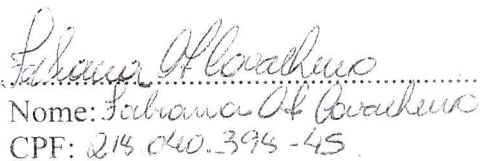 Fabiana Of Cavalheiro
Nome: Fabiana Of Cavalheiro
CPF: 218.040.398-45